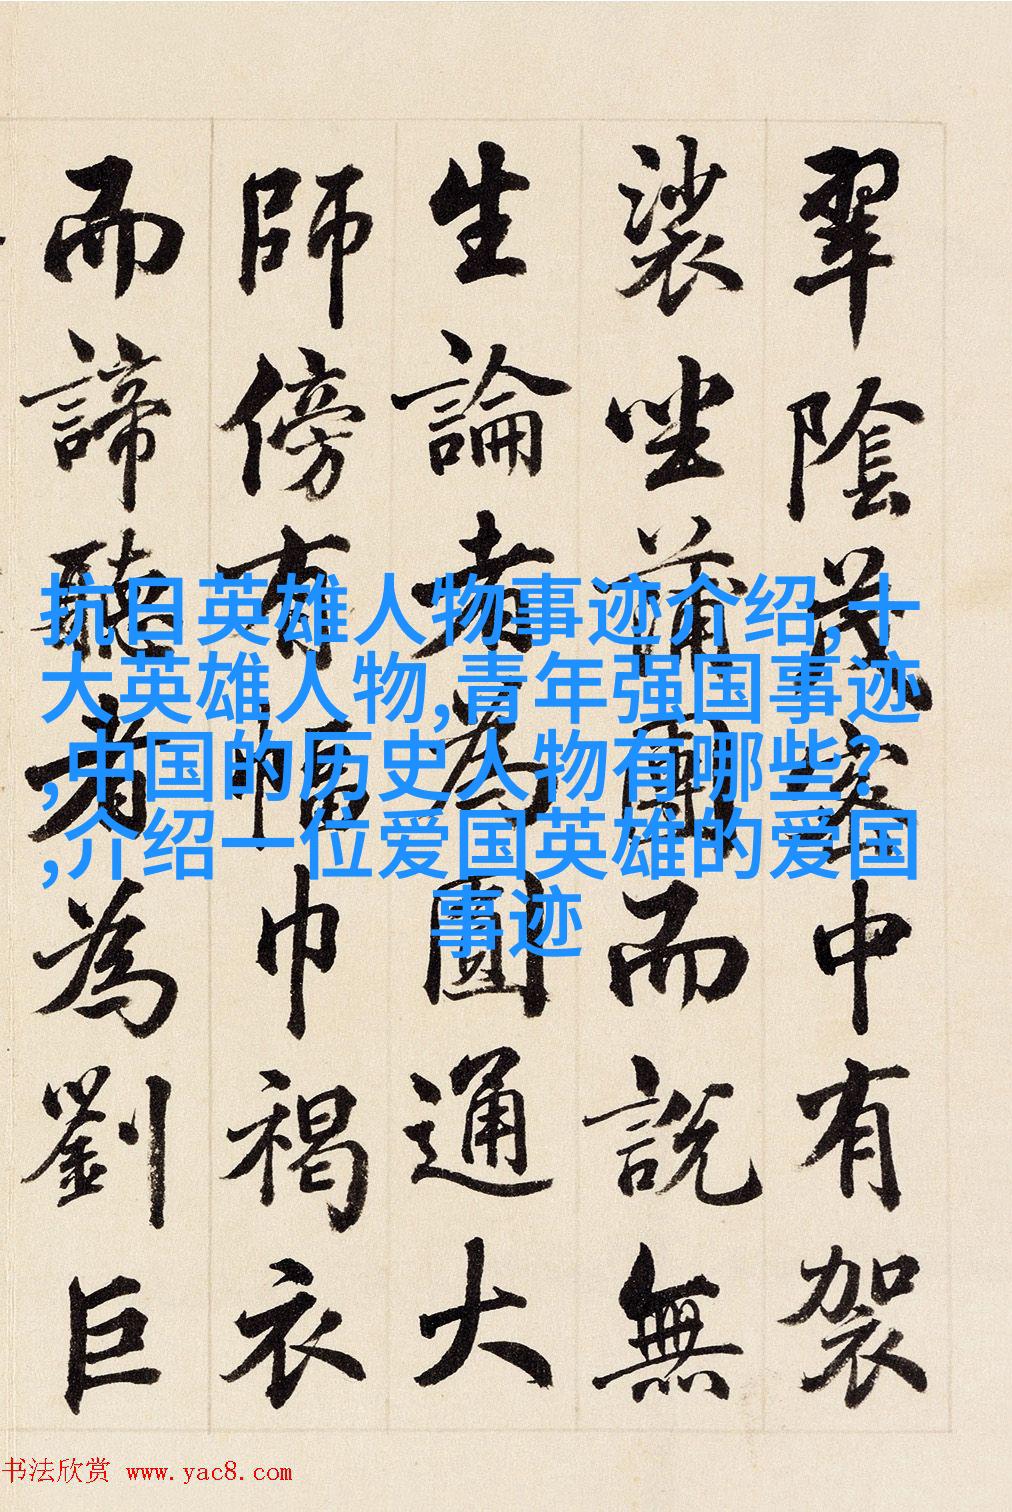 翠陰茂密中有袈
裟坐蒲團而說無
生論者為圓通大
師傍有幅巾褐衣
而諦聽者為劉巨
抗日英雄人物事迹介绍,十
大英雄人物,青年强国事迹
,中国的历史人物有哪些?
,介绍一位爱国英雄的爱国
事迹
书法欣赏 www.yac8.com